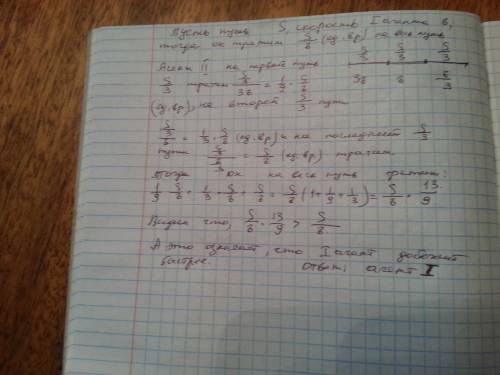 Пусть путь S, скорость I агента в,
тогда он тратит S/в (ед.вр) на весь путь
S/3 S/3 S/3
Агент II на первый путь
3в в в/3
S/3 тратит (S/3)/3в = 1/9 · S/в
(ед.вр), на второй S/3 пути
(S/3)/в = 1/3 · S/в (ед.вр) и на последней S/3
пути (S/3)/(в/3) = S/в (ед.вр) тратит.
Тогда он на весь путь тратит:
1/9 · S/в + 1/3 · S/в + S/в = S/в (1 + 1/9 + 1/3) = S/в · 13/9
Видим что, S/в · 13/9 > S/в.
А это означает, что I агент добежит
быстрее. Ответ: агент I